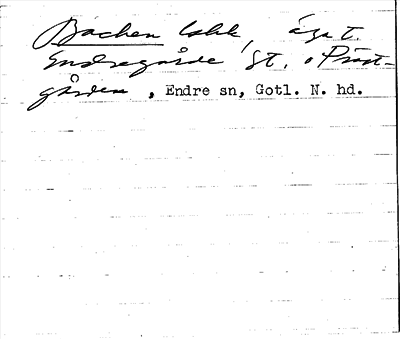 Backen lokk, ägs t.
Endregårde St. o Präst-
gården, Endre sn, Gotl. N. hd.